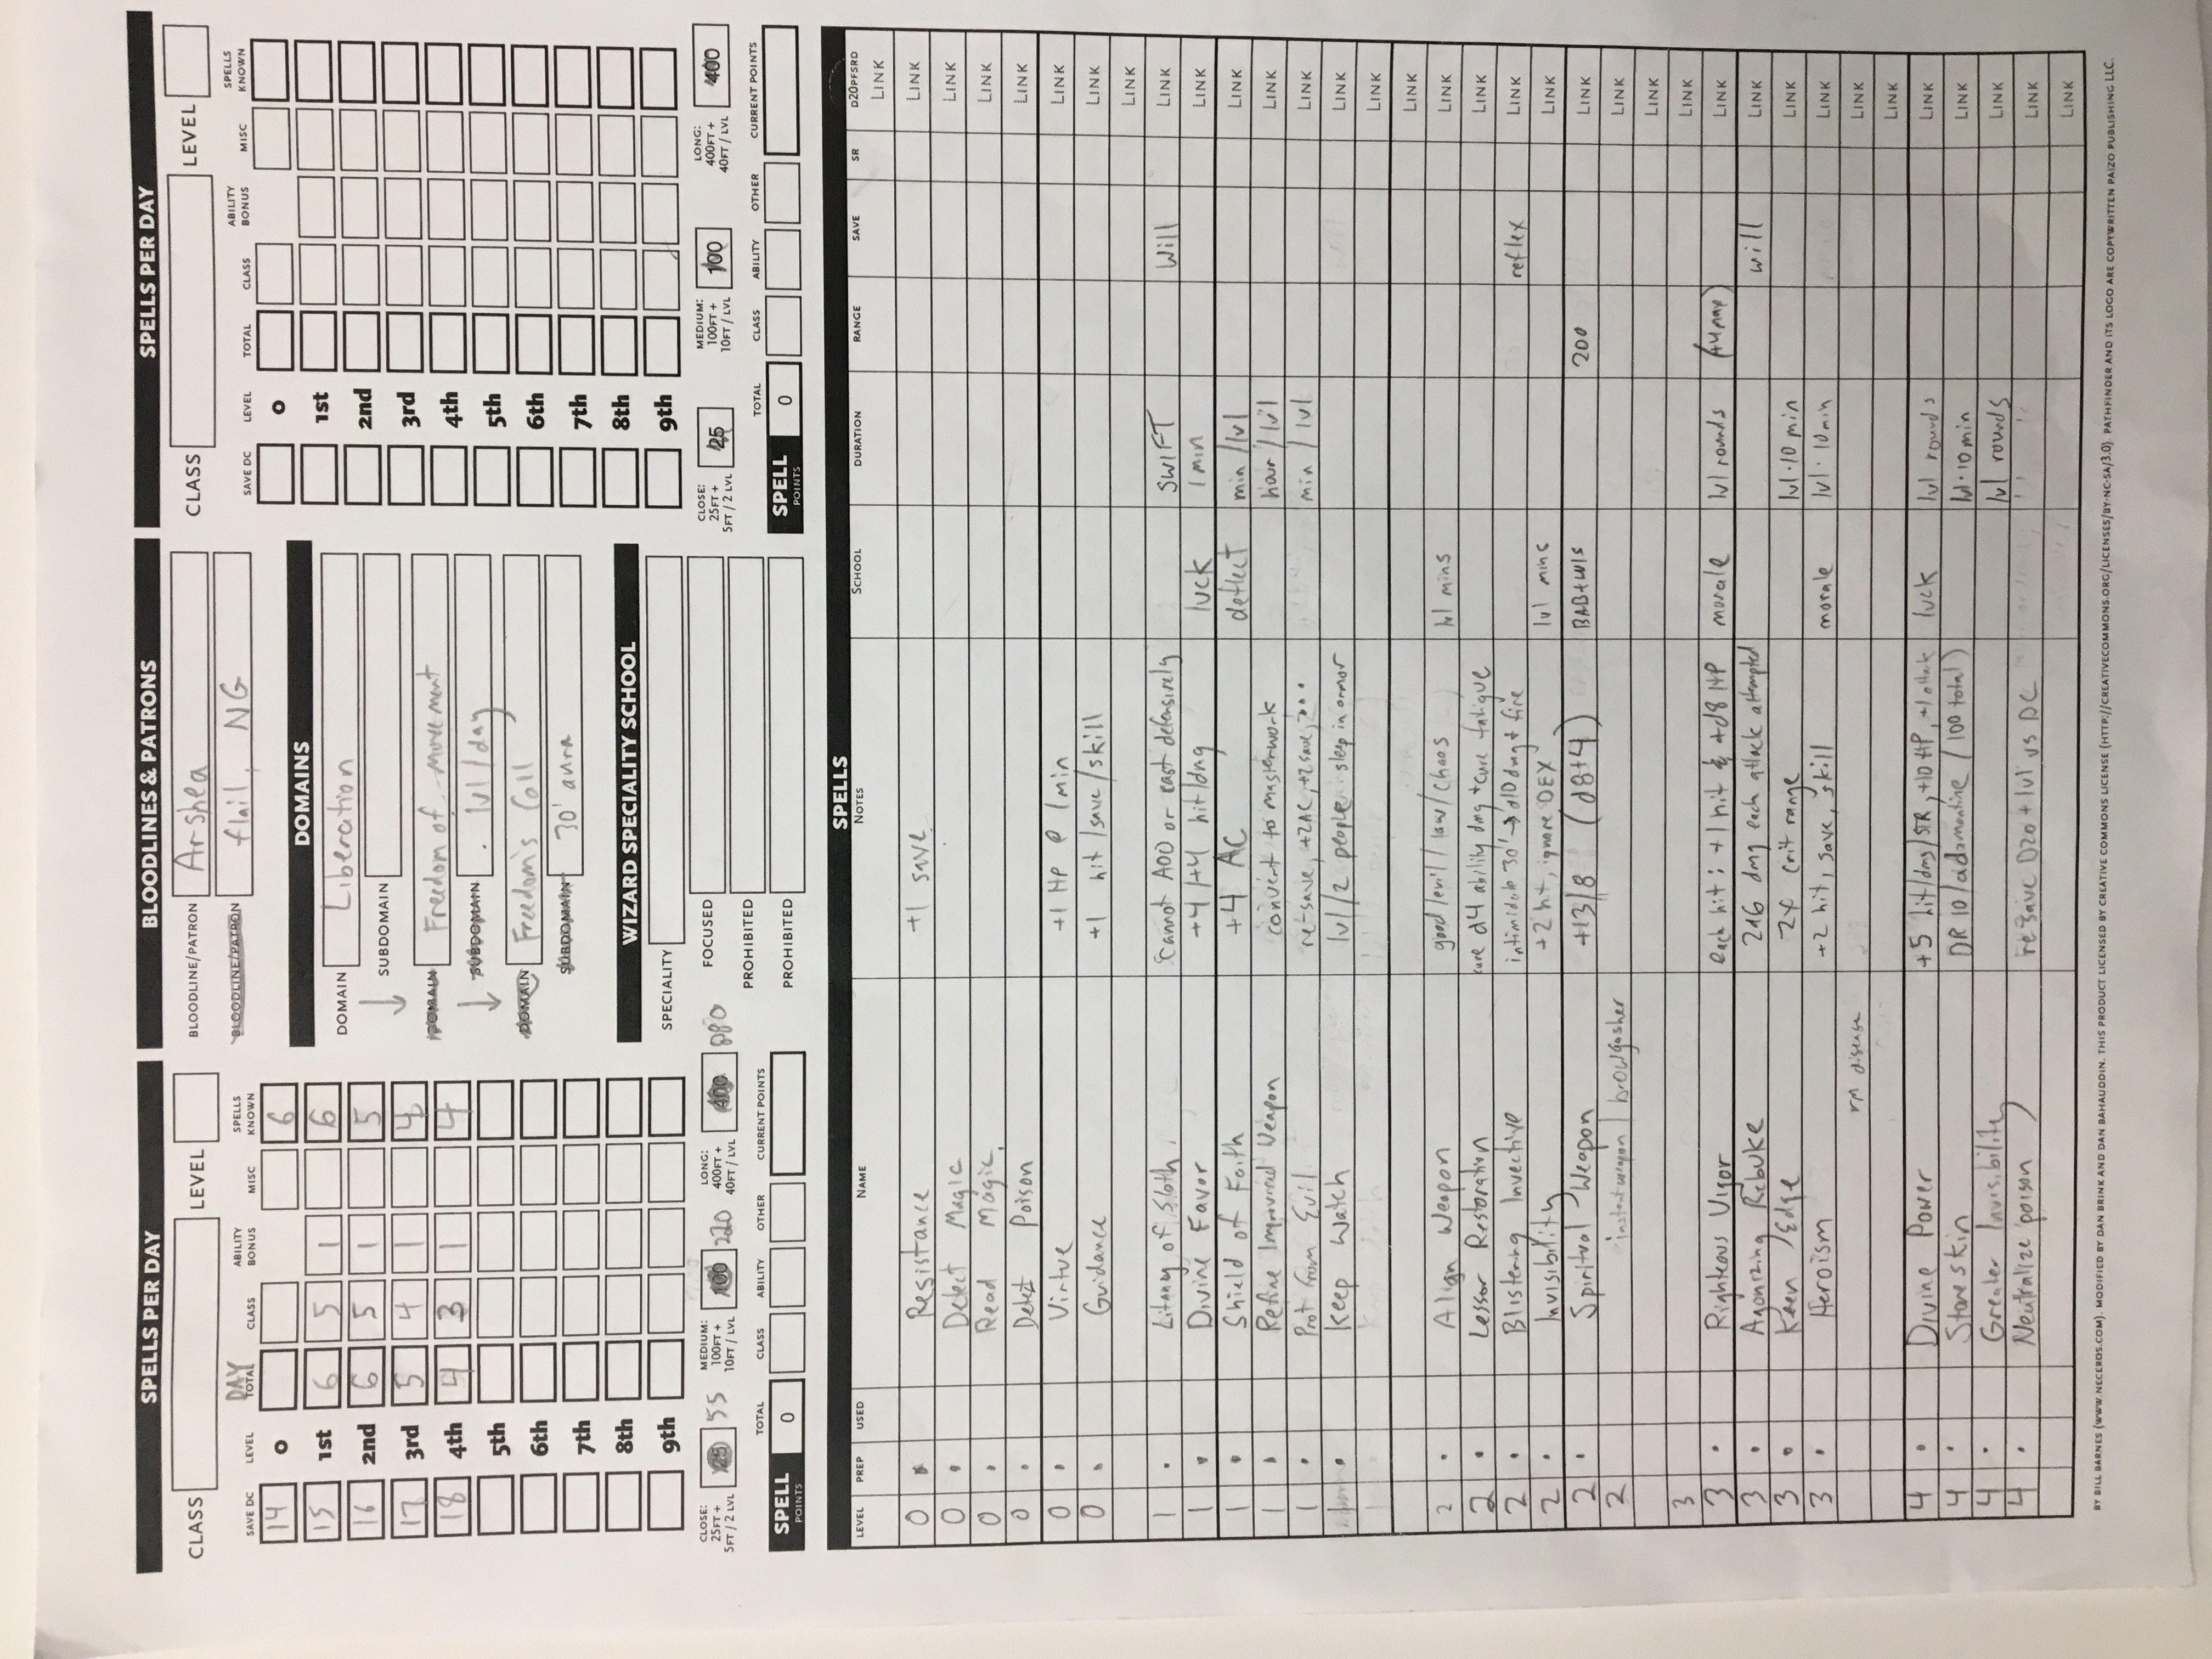 SPELLS PER DAY
CLASS LEVEL
DAY
SAVE DC LEVEL TOTAL CLASS ABILITY BONUS MISC SPELLS KNOWN
14 0 6
15 1st 6 5 1 6
16 2nd 6 5 1 5
17 3rd 5 4 1 4
18 4th 4 3 1 4
5th
6th
7th
8th
9th
CLOSE: 25FT + 5FT / 2 LVL 25 55 MEDIUM: 100FT + 10FT / LVL 100 220 LONG: 400FT + 40FT / LVL 400 880
TOTAL CLASS ABILITY OTHER CURRENT POINTS
SPELL POINTS 0
BLOODLINES & PATRONS
BLOODLINE/PATRON Arshea
BLOODLINE/PATRON flail, NG
DOMAINS
DOMAIN Liberation
SUBDOMAIN
DOMAIN Freedom of movement
SUBDOMAIN lvl/day
DOMAIN Freedom's Call
SUBDOMAIN 30' aura
WIZARD SPECIALITY SCHOOL
SPECIALITY
FOCUSED
PROHIBITED
PROHIBITED
SPELLS PER DAY
CLASS LEVEL
SAVE DC LEVEL TOTAL CLASS ABILITY BONUS MISC SPELLS KNOWN
0
1st
2nd
3rd
4th
5th
6th
7th
8th
9th
CLOSE: 25FT + 5FT / 2 LVL 25 MEDIUM: 100FT + 10FT / LVL 100 LONG: 400FT + 40FT / LVL 400
TOTAL CLASS ABILITY OTHER CURRENT POINTS
SPELL POINTS 0
SPELLS
LEVEL PREP USED NAME NOTES SCHOOL DURATION RANGE SAVE SR D20PFSRD
LINK
0 Resistance +1 save LINK
0 Detect Magic LINK
0 Read Magic LINK
0 Detect Poison LINK
0 Virtue +1 HP @ 1min LINK
0 Guidance +1 hit/save/skill LINK
LINK
1 Litany of Sloth cannot AOO or cast defensively SWIFT Will LINK
1 Divine Favor +4/+4 hit/dmg luck 1 min LINK
1 Shield of Faith +4 AC deflect min/lvl LINK
1 Refine Improvised Weapon convert to masterwork hour/lvl LINK
1 Prot from Evil re-save, +2AC, +2save, ... min/lvl LINK
1 Keep Watch lvl/2 people sleep in armor LINK
1 LINK
LINK
2 Align Weapon good/evil/law/chaos lvl mins LINK
2 Lessor Restoration cure d4 ability dmg + cure fatigue LINK
2 Blistering Invective intimidate 30' → d10 dmg + fire reflex LINK
2 Invisibility +2 hit, ignore DEX lvl mins LINK
2 Spiritual Weapon +13/8 (d8+4) BAB+WIS 200 LINK
2 instant weapon / browgasher LINK
LINK
3 LINK
3 Righteous Vigor each hit: +1 hit & +d8 HP morale lvl rounds (+4 max) LINK
3 Agonizing Rebuke 2d6 dmg each attack attempted will LINK
3 Keen Edge 2x crit range lvl·10 min LINK
3 Heroism +2 hit, save, skill morale lvl·10min LINK
rm disease LINK
LINK
4 Divine Power +5 hit/dmg/STR, +10 HP, +1 attack luck lvl rounds LINK
4 Stoneskin DR 10/adamantine (100 total) lvl·10 min LINK
4 Greater Invisibility lvl rounds LINK
4 Neutralize poison re save D20 + lvl vs DC LINK
LINK
BY BILL BARNES (WWW.NECEROS.COM). MODIFIED BY DAN BRINK AND DAN BAHAUDDIN. THIS PRODUCT LICENSED BY CREATIVE COMMONS LICENSE (HTTP://CREATIVECOMMONS.ORG/LICENSES/BY-NC-SA/3.0). PATHFINDER AND ITS LOGO ARE COPYWRITTEN PAIZO PUBLISHING LLC.